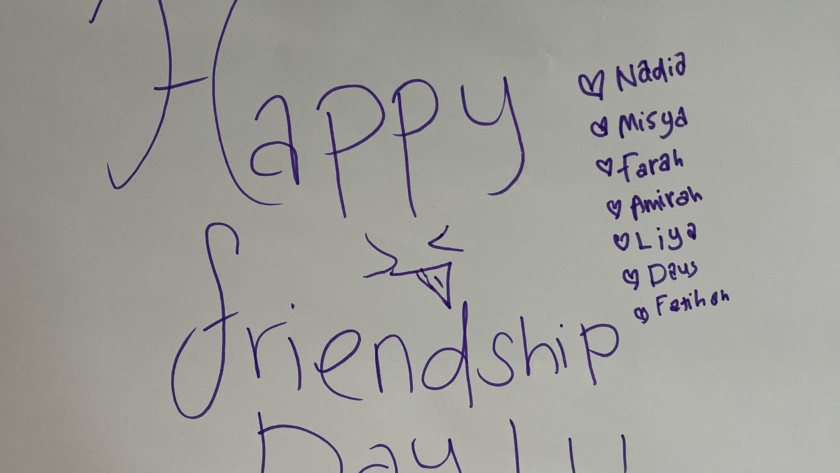 Happy
friendship
Day!!!
♡ Nadia
♡ Misya
♡ Farah
♡ Amirah
♡ Liya
♡ Daus
♡ Fatihah